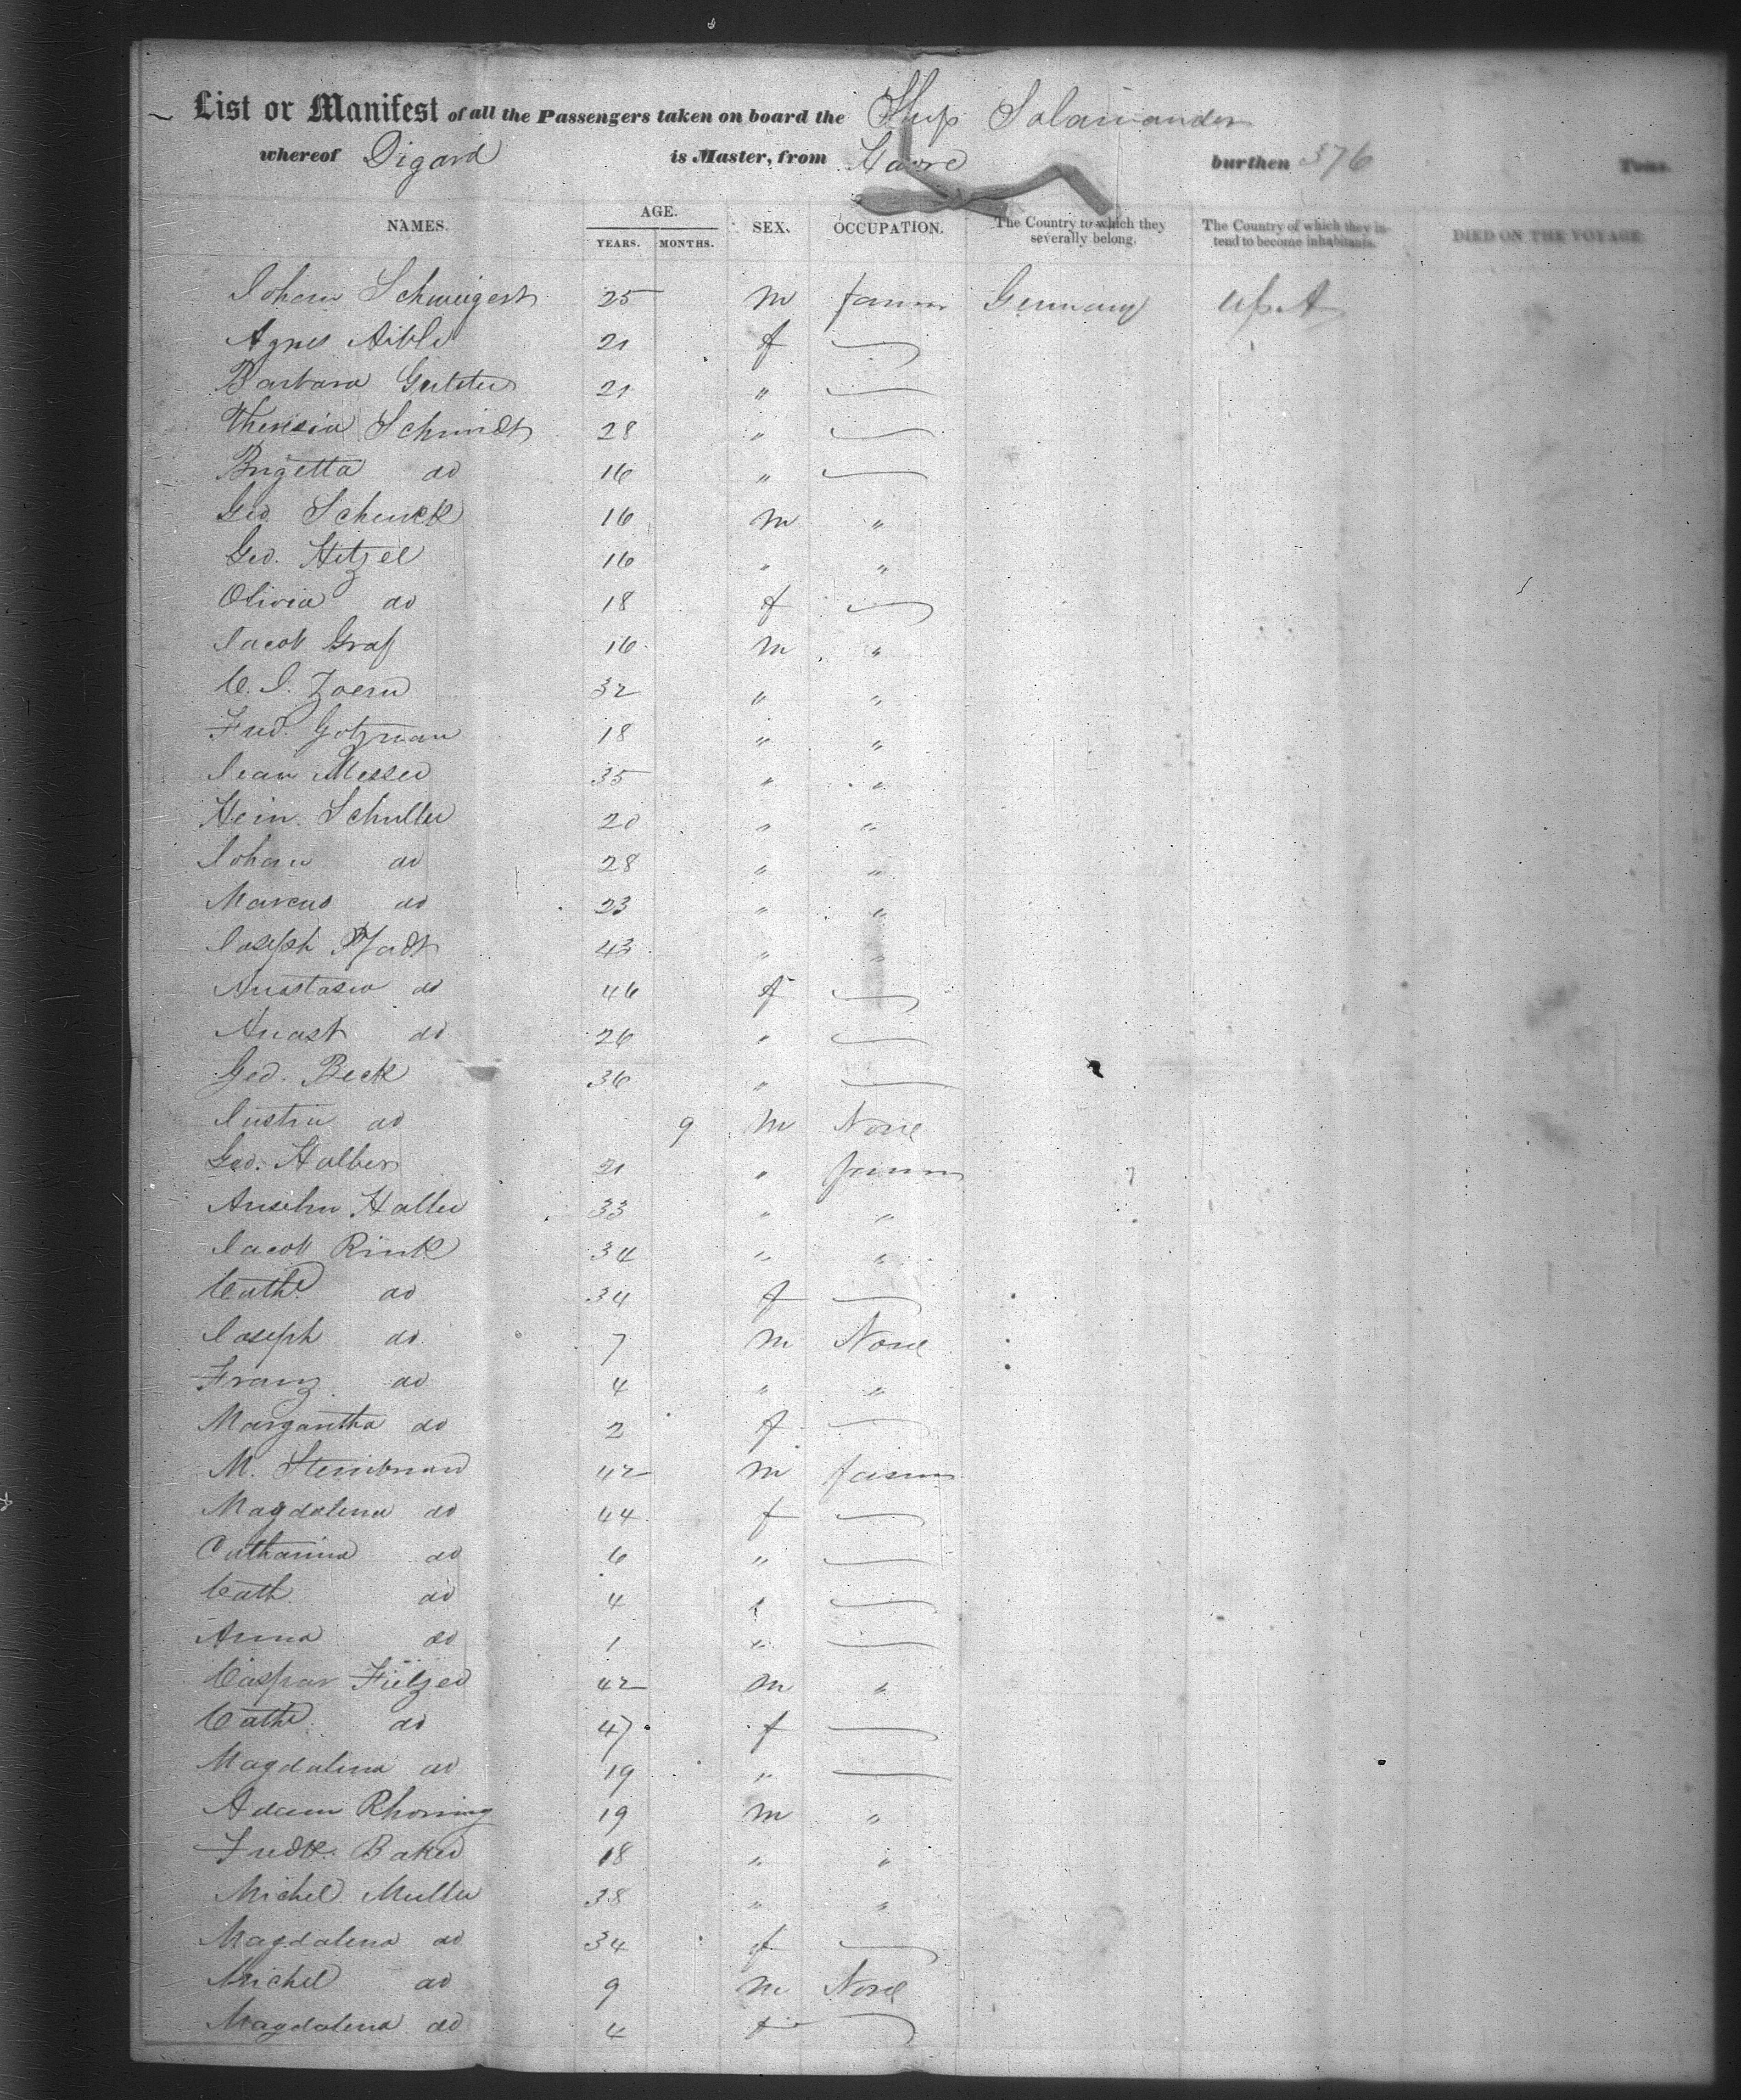 List or Manifest of all the Passengers taken on board the Ship Salamander
whereof Digard is Master, from Havre burthen 376 Tons.
NAMES. AGE. YEARS. MONTHS. SEX. OCCUPATION. The Country to which they severally belong. The Country of which they intend to become inhabitants. DIED ON THE VOYAGE
Johann Schweigert 25 m farmer Germany U.S.A
Agnes Aible 21 f
Barbara 21 "
Theresia Schmidt 28 "
Brigetta do 16 "
Geo. Schenck 16 m "
Geo. Hetzel 16 " "
Olivia do 18 f
Jacob Graf 16 m "
C. J. Zoern 32 " "
Fred. Gotzman 18 " "
Jean Messer 35 " "
Hein. Schuller 20 " "
Johann do 28 " "
Marcus do 23 " "
Joseph Pfadt 43 " "
Anastasia do 46 f
Anast do 26 "
Geo. Beck 36 "
Justin do 9 m None
Geo. Halber 21 " farmer
Anselm Haller 33 " "
Jacob Rink 34 " "
Cath. do 34 f
Joseph do 7 m None
Franz do 4 " "
Margaretha do 2 f
M. Steinbrun 42 m farmer
Magdalena do 44 f
Catharina do 6 "
Cath. do 4 "
Anna do 1 "
Caspar Fülzer 42 m "
Cath. do 47 f
Magdalena do 19 "
Adam Rhoning 19 m "
Fredk. Baker 18 " "
Michel Muller 38 " "
Magdalena do 34 f
Michel do 9 m None
Magdalena do 4 f